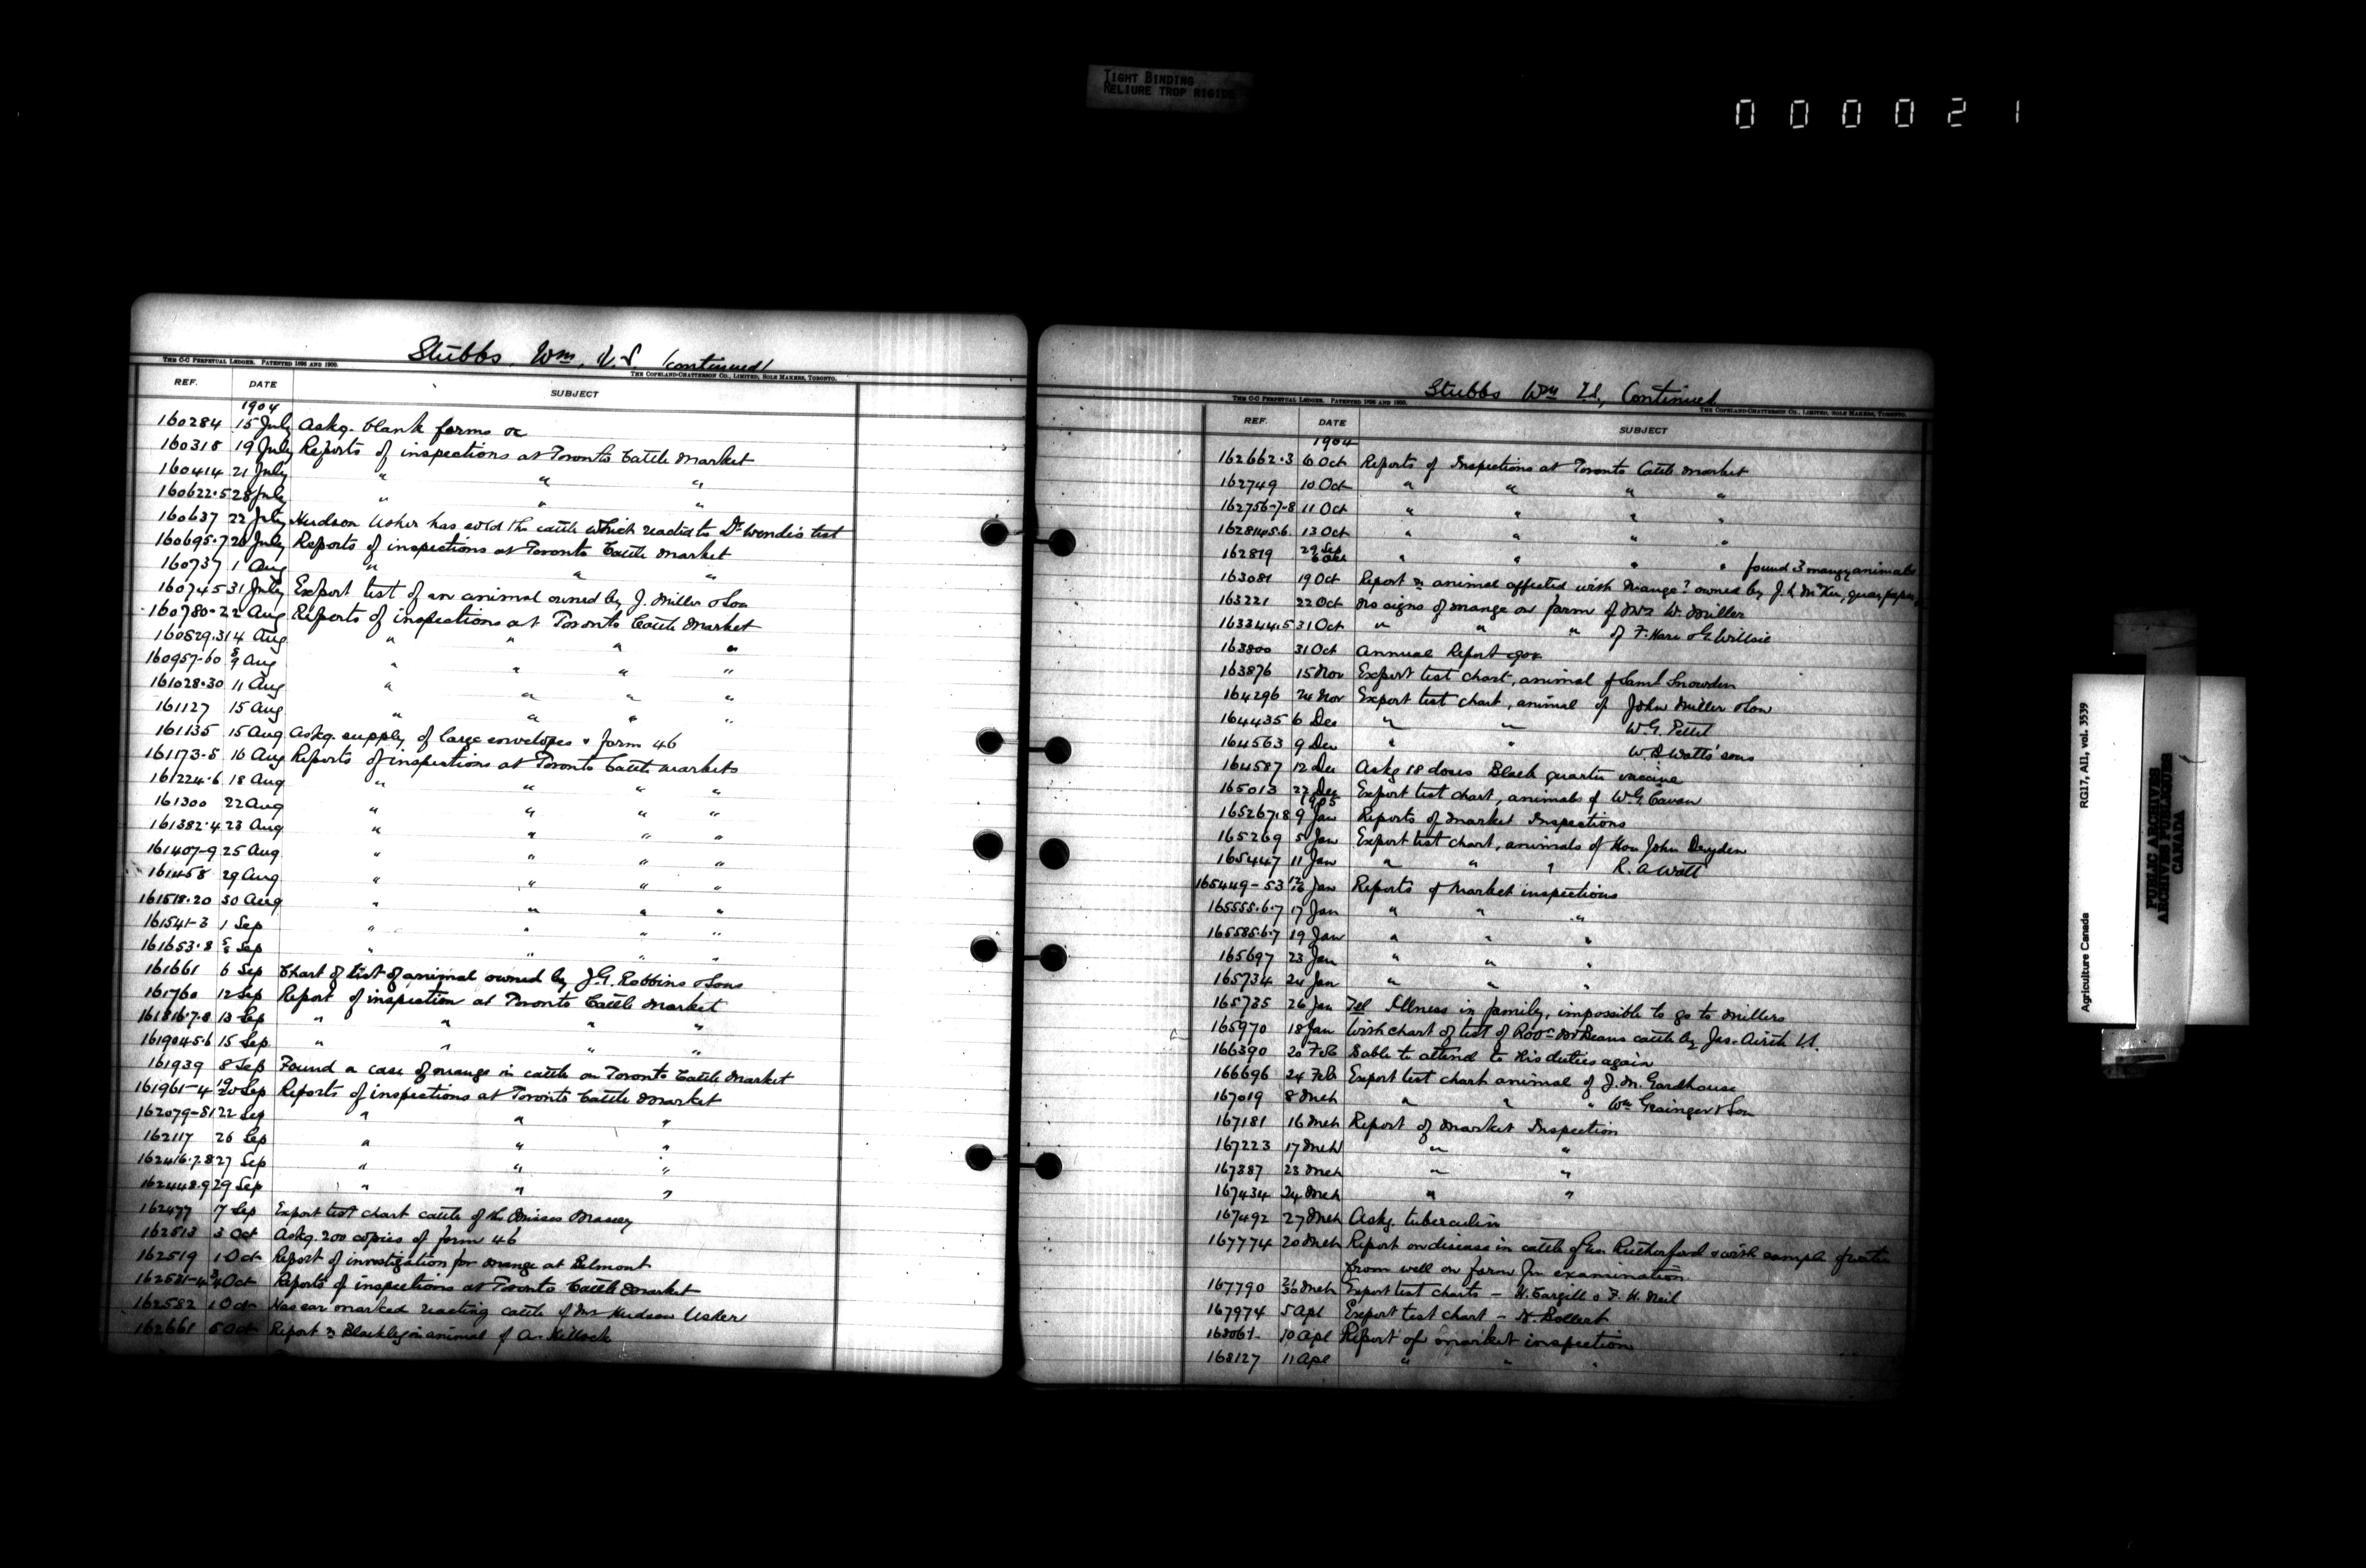 TIGHT BINDING
RELIURE TROP RIGIDE
000021
Stubbs, Wm, V.S. (continued)
THE C-C PERPETUAL LEDGER. PATENTED 1896 AND 1900.
THE COPELAND-CHATTERSON CO., LIMITED, SOLE MAKERS, TORONTO.
REF. DATE SUBJECT
1904
160284 15 July Askg. blank forms &c
160318 19 July Reports of inspections at Toronto Cattle Market
160414 21 July " " "
160622.5 28 July " " "
160637 22 July Hudson Usher has sold the cattle which reacted to Dr test
160695.7 26 July Reports of inspections at Toronto Cattle Market
160737 1 Aug " " "
160745 31 July Export test of an animal owned by J. Miller & Son
160780.2 2 Aug Reports of inspections at Toronto Cattle Market
160829.31 4 Aug " " " "
160957-60 8/9 Aug " " " "
161028.30 11 Aug " " " "
161127 15 Aug " " " "
161135 15 Aug Askg. supply of large envelopes & form 46
161173.5 16 Aug Reports of inspections at Toronto Cattle Markets
161224.6 18 Aug " " " "
161300 22 Aug " " " "
161382.4 23 Aug " " " "
161407-9 25 Aug " " " "
161458 29 Aug " " " "
161518.20 30 Aug " " " "
161541-3 1 Sep " " " "
161653.8 Sep " " " "
161661 6 Sep Chart of test of animal owned by J.G. Robbins & Sons
161760 12 Sep Report of inspection at Toronto Cattle Market
161816.7.8 13 Sep " " " "
161904.5.6 15 Sep " " " "
161939 8 Sep Found a case of mange in cattle on Toronto Cattle Market
161961-4 19/20 Sep Reports of inspections at Toronto Cattle Market
162079-81 22 Sep " " "
162117 26 Sep " " "
162416.7.8 27 Sep " " "
162448.9 29 Sep " " "
162477 17 Sep Export test chart cattle of the Misses Massey
162513 3 Oct Askg. 200 copies of form 46
162519 1 Oct Report of investigation for mange at Belmont
162581-4 3/4 Oct Reports of inspections at Toronto Cattle Market
162582 1 Oct Has ear marked reacting cattle of Mr Hudson Usher
162661 5 Oct Report re Blackleg in animal of A.
Stubbs Wm V.S., Continued
THE C-C PERPETUAL LEDGER. PATENTED 1896 AND 1900.
THE COPELAND-CHATTERSON CO., LIMITED, SOLE MAKERS, TORONTO.
REF. DATE SUBJECT
1904
162662.3 6 Oct Reports of Inspections at Toronto Cattle Market
162749 10 Oct " " " "
162756-7-8 11 Oct " " " "
162814.5.6. 13 Oct " " " "
162819 29 Sep 6 Oct " " " " found 3 mangy animals
163081 19 Oct Report re animal affected with Mange? owned by J.
163221 22 Oct No signs of mange on farm of Mrs W. Miller
163344.5 31 Oct " " " of F. Hare & G. Willsie
163800 31 Oct Annual Report
163876 15 Nov Export test chart, animal of Saml Snowden
164296 24 Nov Export test chart, animal of John Miller & Son
164435 6 Dec " " W.G. Pettit
164563 9 Dec " " W.B. Watts' sons
164587 12 Dec Askg 18 doses Black quarter vaccine
165013 22 Dec Export test chart, animals of W.G. Cavan
1905
165267.8 9 Jan Reports of Market Inspections
165269 5 Jan Export test chart, animals of Hon John Dryden
165447 11 Jan " " " R. A Watt
165449-53 12/16 Jan Reports of Market inspections
165555.6.7 17 Jan " " "
165585.6.7 19 Jan " " "
165697 23 Jan " " "
165734 24 Jan " " "
165735 26 Jan Tel Illness in family, impossible to go to Millers
165970 18 Jan With chart of test of Robt McBeans cattle by Jas. Airth V.S.
166390 20 Feb Is able to attend to his duties again
166696 24 Feb Export test chart animal of J. M. Gardhouse
167019 8 Mch " " " Wm Grainger & Son
167181 16 Mch Report of Market Inspection
167223 17 Mch " "
167387 23 Mch " "
167434 24 Mch " "
167492 27 Mch Askg. tuberculin
167774 20 Mch Report on disease in cattle of Geo Rutherford & with sample of water
from well on farm for examination
167790 21/30 Mch Export test charts - H. Cargill & F. H. Neil
167974 5 Apl Export test chart - H. Bollert
168061 10 Apl Report of market inspection
168127 11 Apl " " "
Agriculture Canada RG17, AII, vol. 3539
PUBLIC ARCHIVES
ARCHIVES PUBLIQUES
CANADA